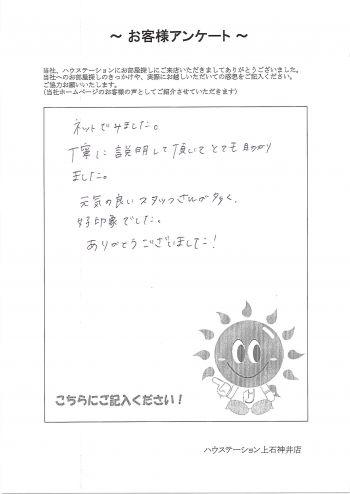 ～ お客様アンケート ～
当社、ハウステーションにお部屋探しにご来店いただきましてありがとうございました。
当社へのお部屋探しのきっかけや、実際にお越しいただいての感想をご記入ください。
ご協力お願いします。
（当社ホームページのお客様の声としてご紹介させていただきます）
ネットでみました。
丁寧に説明して頂いてとても助かり
ました。
元気の良いスタッフさんが多く、
好印象でした。
ありがとうございました！
こちらにご記入ください！
ハウステーション上石神井店